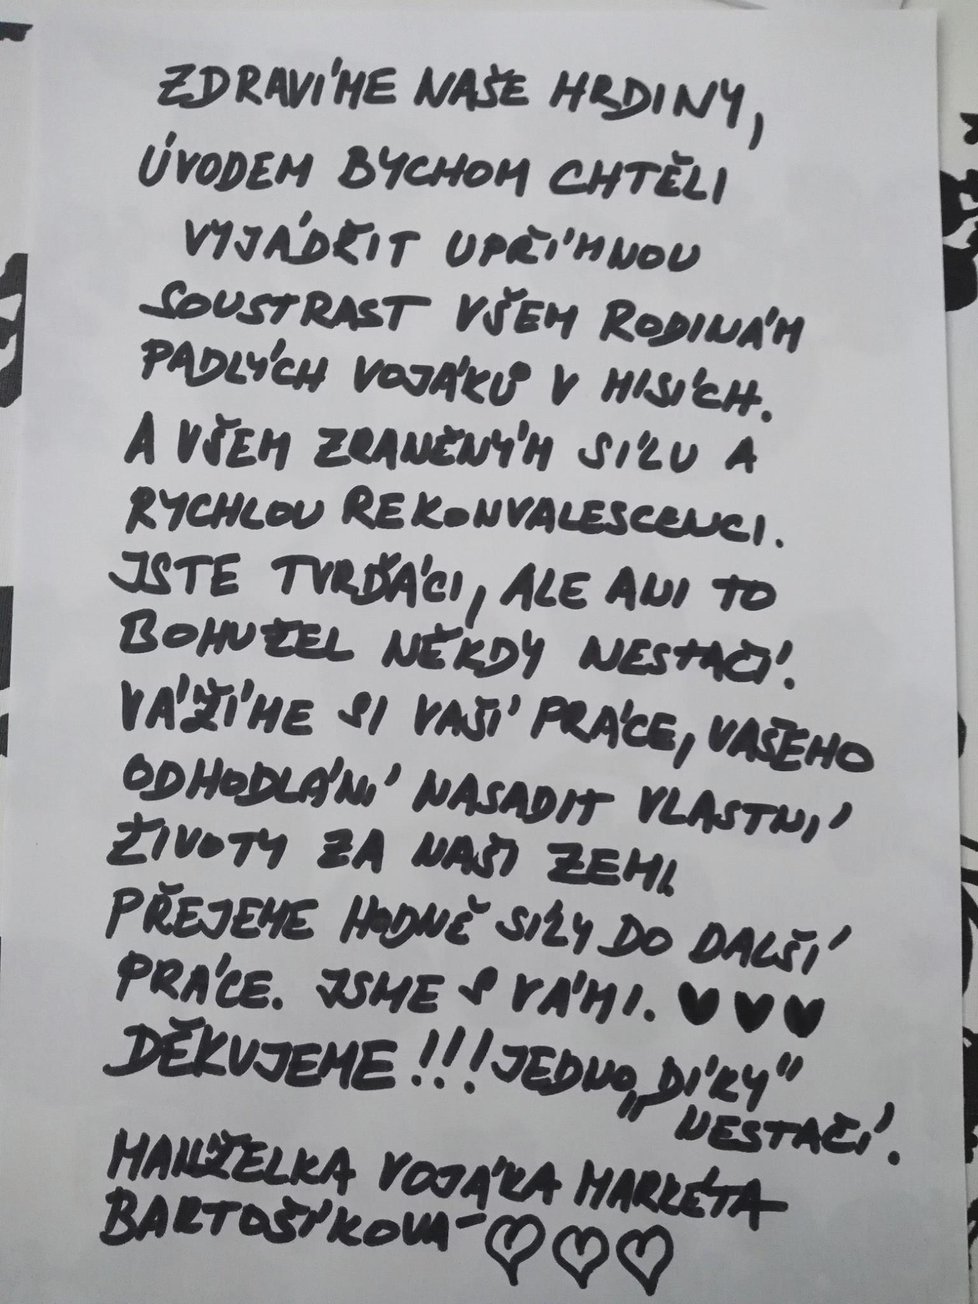 ZDRAVÍME NAŠE HRDINY,
ÚVODEM BYCHOM CHTĚLI
VYJÁDŘIT UPŘÍMNOU
SOUSTRAST VŠEM RODINÁM
PADLÝCH VOJÁKŮ V MISÍCH.
A VŠEM ZRANĚNÝM SÍLU A
RYCHLOU REKONVALESCENCI.
JSTE TVRĎÁCI, ALE ANI TO
BOHUŽEL NĚKDY NESTAČÍ.
VÁŽÍME SI VAŠÍ PRÁCE, VAŠEHO
ODHODLÁNÍ NASADIT VLASTNÍ
ŽIVOTY ZA NAŠI ZEMI.
PŘEJEME HODNĚ SÍLY DO DALŠÍ
PRÁCE. JSME S VÁMI. ♥♥♥
DĚKUJEME!!! JEDNO „DÍKY"
NESTAČÍ.
MANŽELKA VOJÁKA MARKÉTA
BARTOŠÍKOVÁ ♡♡♡